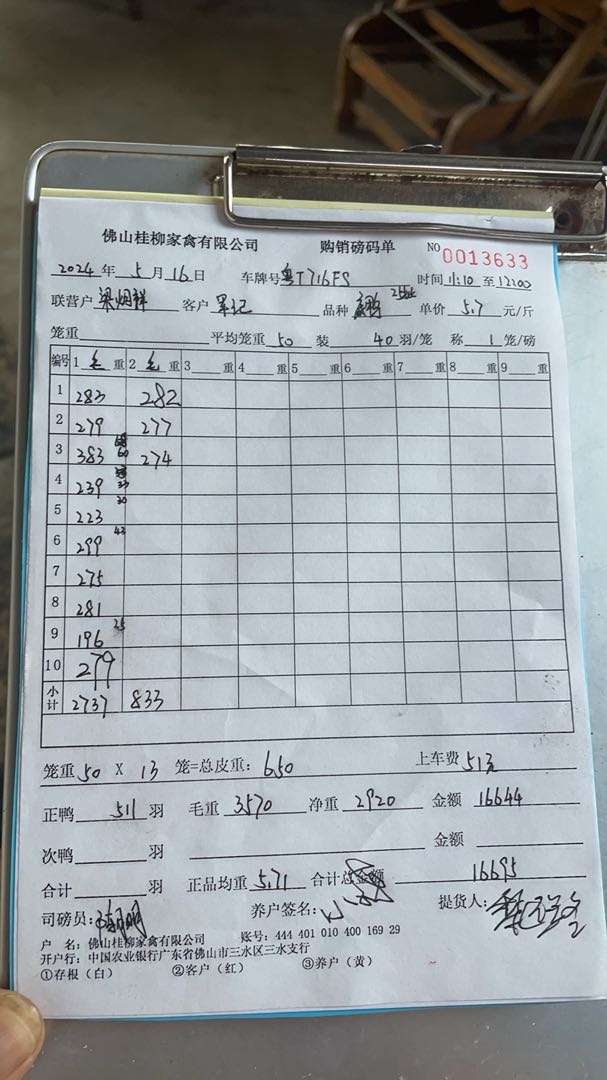 佛山桂柳家禽有限公司 购销磅码单 NO 0013633
2024 年 5 月 16 日 车牌号 粤T716FS 时间 11:10 至 12:00
联营户 客户 罩记 品种 单价 5.7 元/斤
笼重 平均笼重 50 装 40 羽/笼 称 1 笼/磅
编号 1 毛 重 2 毛 重 3 重 4 重 5 重 6 重 7 重 8 重 9 重
1 283 282
2 279 277
3 383 60 274
4 239
5 223 30
6 299 43
7 275
8 281
9 196 25
10 279
小计 2737 833
笼重 50 X 13 笼=总皮重: 650 上车费 51元
正鸭 511 羽 毛重 3570 净重 2920 金额 16644
次鸭 羽 金额
合计 羽 正品均重 5.71 合计总金额 16695
司磅员: 养户签名: 提货人:
户 名: 佛山桂柳家禽有限公司 账号: 444 401 010 400 169 29
开户行: 中国农业银行广东省佛山市三水区三水支行
①存根(白) ②客户(红) ③养户(黄)